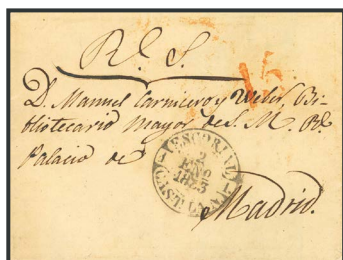 Rl. S.
15
D. Manuel Carnicero y Weber, Bi-
bliotecario mayor de S. M. Rl.
Palacio de
ESCORIAL
2
ENE
1853
CAST. LA N.
Madrid.